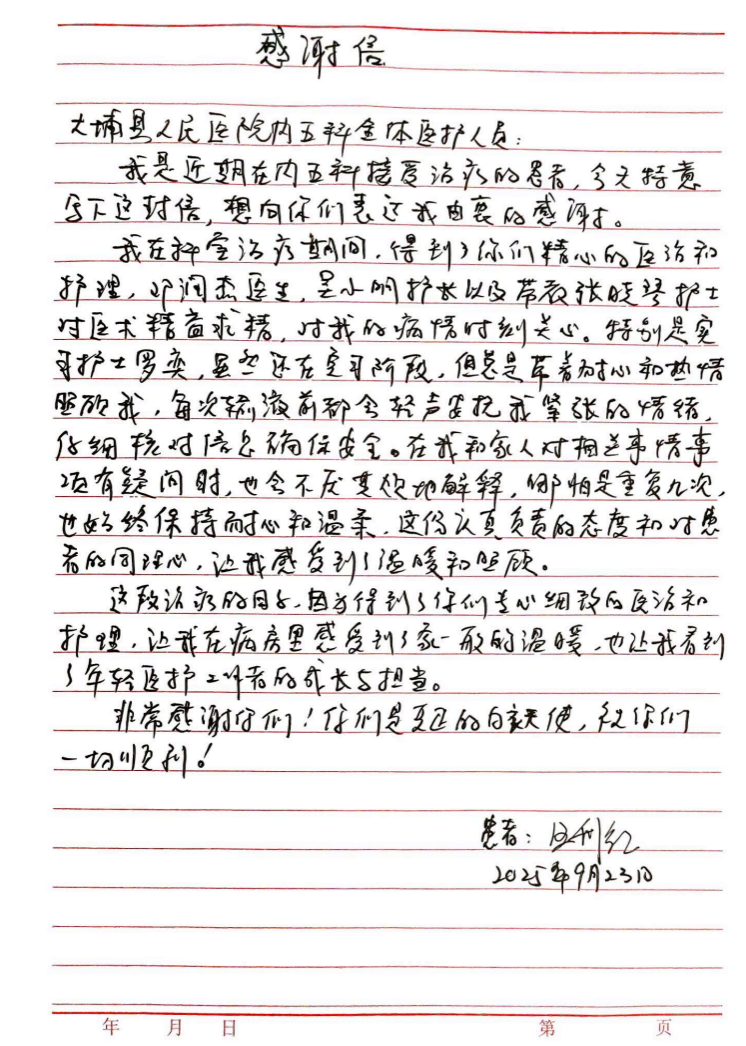 感谢信
大埔县人民医院内五科全体医护人员:
我是近期在内五科接受治疗的患者,今天特意
写下这封信,想向你们表达我由衷的感谢。
我在科室治疗期间,得到了你们精心的医治和
护理,邓润杰医生,吴小明护长以及带教张晓琴护士
对医术精益求精,对我的病情时刻关心。特别是实
习护士罗奕,虽然还在实习阶段,但总是带着耐心和热情
照顾我,每次输液前都会轻声安抚我紧张的情绪,
仔细核对信息确保安全。在我和家人对相关事情事
项有疑问时,也会不厌其烦地解释,哪怕是重复几次,
也始终保持耐心和温柔,这份认真负责的态度和对患
者的同理心,让我感受到了温暖和照顾。
这段治疗的日子,因为得到了你们专心细致的医治和
护理,让我在病房里感受到了家一般的温暖,也让我看到
了年轻医护工作者的成长与担当。
非常感谢你们!你们是真正的白衣天使,祝你们
一切顺利!
患者:利红
2025年9月23日
年 月 日 第 页